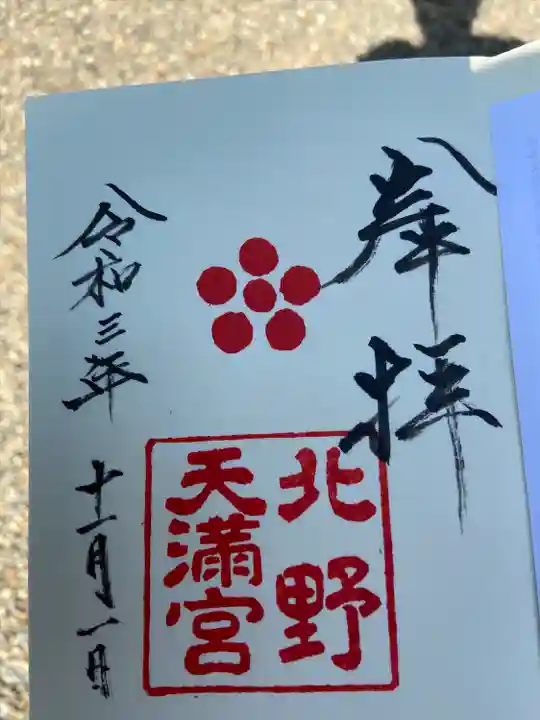 奉拝
北野
天満宮
令和三年 十一月一日